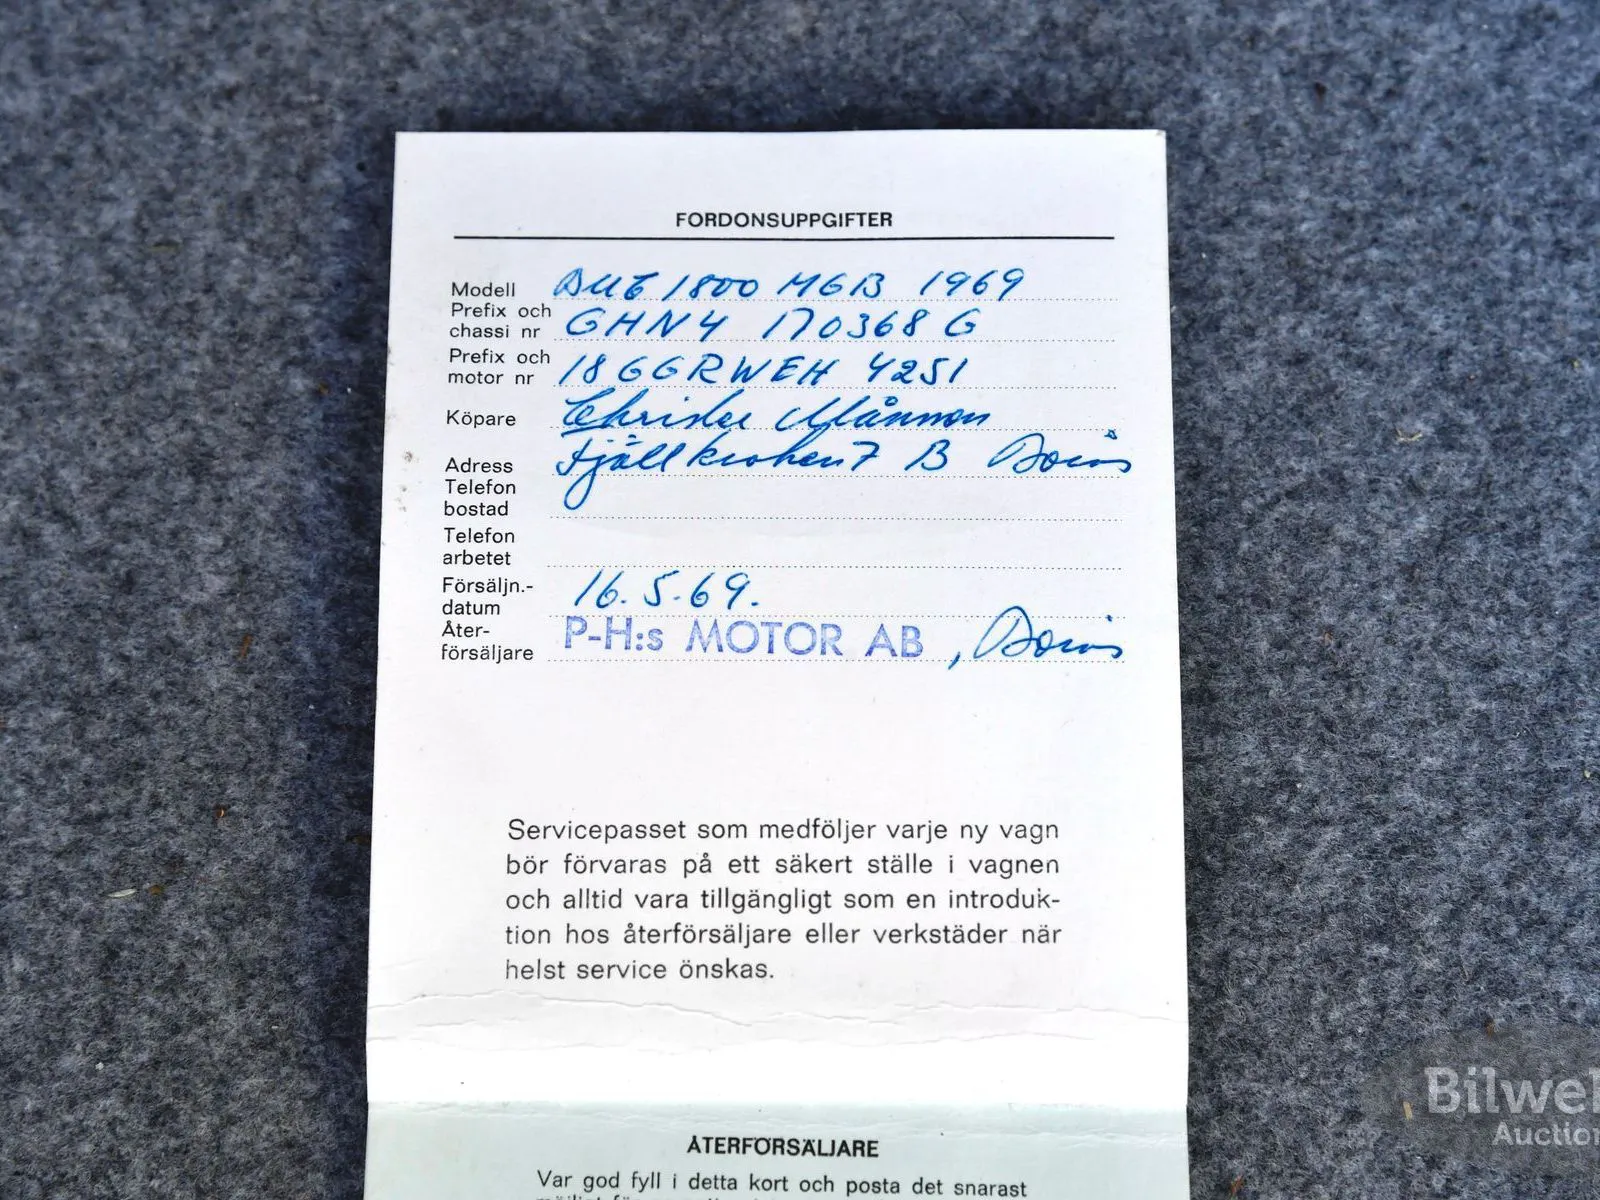 FORDONSUPPGIFTER
Modell 1800 MGB 1969
Prefix och
chassi nr GHN4 170368 G
Prefix och
motor nr 18GGRWEH 4251
Köpare Christer Månsson
Adress B Borås
Telefon
bostad
Telefon
arbetet
Försäljn.-
datum 16.5.69.
Åter-
försäljare P-H:s MOTOR AB, Borås
Servicepasset som medföljer varje ny vagn
bör förvaras på ett säkert ställe i vagnen
och alltid vara tillgängligt som en introduk-
tion hos återförsäljare eller verkstäder när
helst service önskas.
ÅTERFÖRSÄLJARE
Var god fyll i detta kort och posta det snarast
Auction